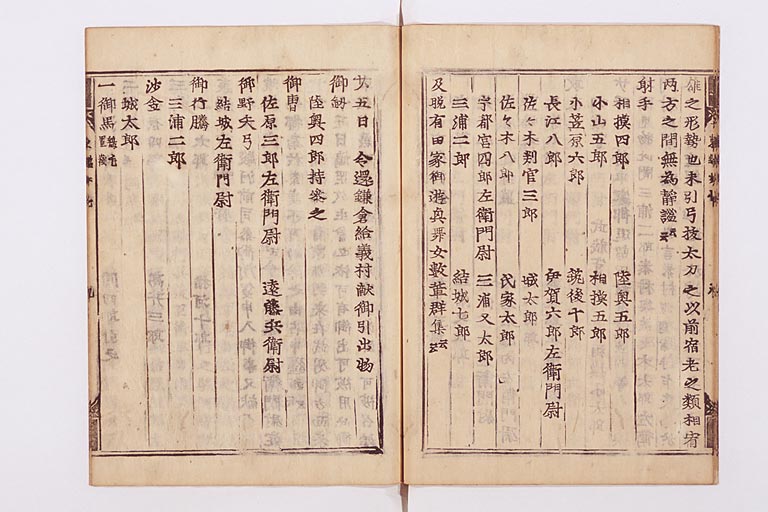 雄之形勢也未引弓抜太刀之以前宿老之類相宥
両方之間無為静謐云云
射手
相撲四郎 陸奥五郎
小山五郎 相撲五郎
小笠原六郎 筑後十郎
長江八郎 伊賀六郎左衛門尉
佐々木判官三郎 城太郎
佐々木八郎 氏家太郎
宇都宮四郎左衛門尉 三浦又太郎
三浦二郎 結城七郎
及晩有田家御遊其興女數輩群集云云
廿五日 令還鎌倉給義村献御引出物
御釼 陸奥四郎持参之
御冑
佐原三郎左衛門尉 遠藤兵衛尉
御野矢弓
結城左衛門尉
御行騰
三浦二郎
沙金
城太郎
一御馬